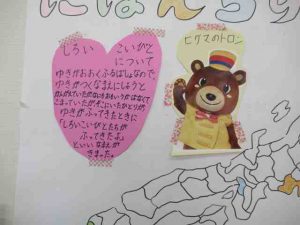 にほんちず
しろい こいびと
について
ゆきがおおくふるばしょなので
ゆきがつくなまえにしようと
かんがえていたが
こまっていたが
ゆきがふってきたときに
「しろいこいびとたちが
ふってきたよ」
といいなまえが
きまった。
ヒグマのトロン